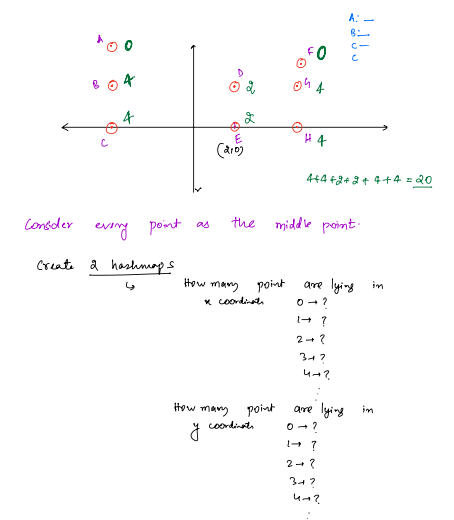 A 0
B 4
C 4
D 2
E 2
(2,0)
F 0
G 4
H 4
A: —
B: —
C —
C
4+4+2+2+4+4 = 20
Consider every point as the middle point.
Create 2 hashmaps
↳ How many point are lying in
x coordinate 0 → ?
1 → ?
2 → ?
3 → ?
4 → ?
⋮
How many point are lying in
y coordinate 0 → ?
1 → ?
2 → ?
3 → ?
4 → ?
⋮